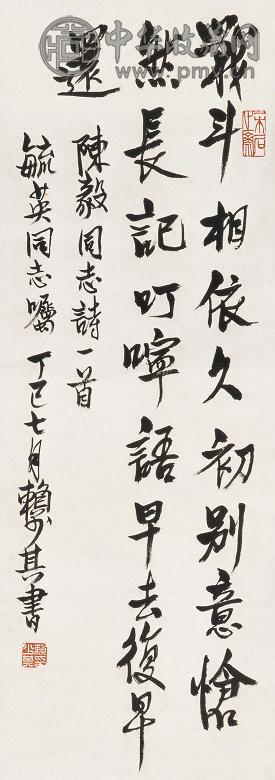 中华收藏网
戰斗相依久初别意愴
然長記叮嚀語早去復早
還
陳毅同志詩一首
毓英同志囑 丁巳七月賴少其書